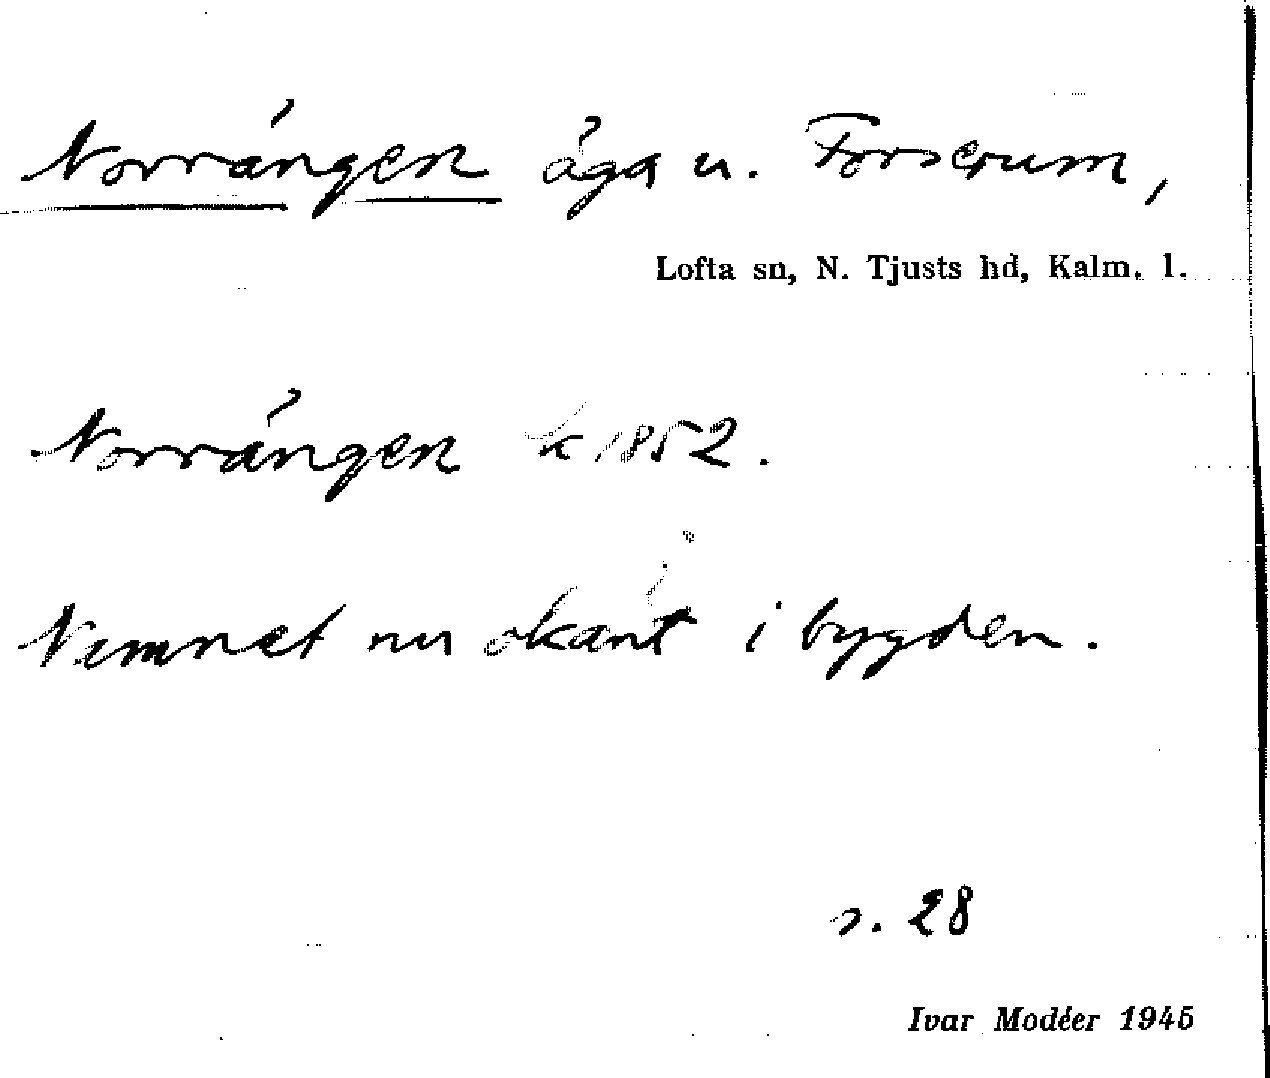 Norrängen äga u. Forserum,
Lofta sn, N. Tjusts hd, Kalm. l.
Norrängen k 1852.
Namnet nu okänt i bygden.
s. 28
Ivar Modéer 1945